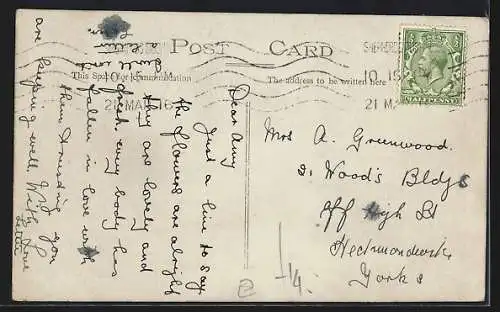 POST CARD
This Space for Communication
The address to be written here
SHEPHERDS
10.15
21 MAR 16
21 MA
HALFPENNY
Dear Amy
Just a line to say
the flowers are alright
they are lovely and
fresh, every body has
fallen in love with
them Trusting you
are keeping well With love
Will write
a letter
later
Mrs A. Greenwood.
2. Wood's Bldgs
Off High St
Heckmondwike
Yorks
-/4.